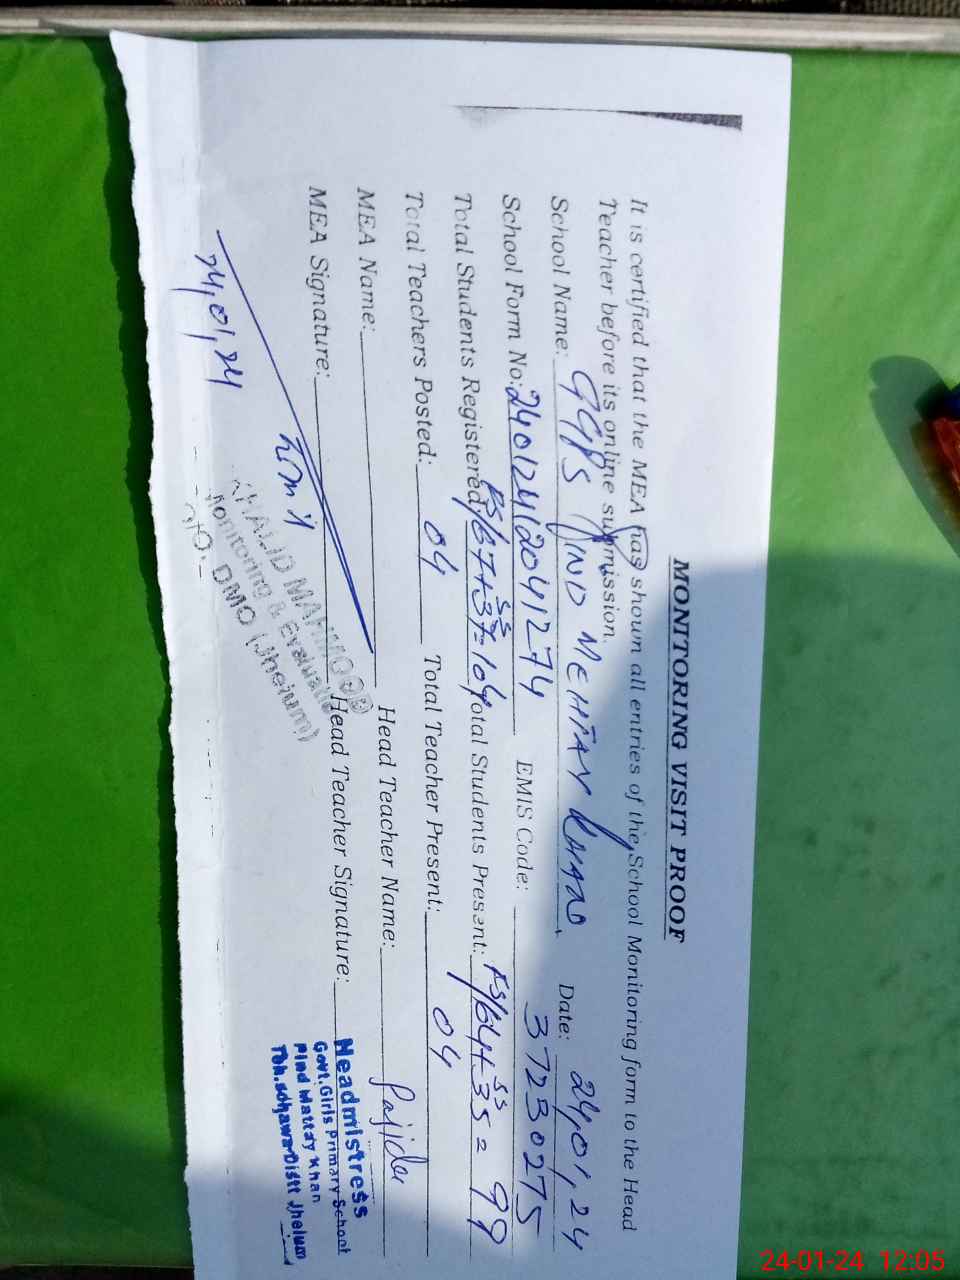 MONITORING VISIT PROOF
It is certified that the MEA has shown all entries of the School Monitoring form to the Head
Teacher before its online submission.
School Name: GGPS PIND MEHTAY KHAN Date: 24,01,24
School Form No: 24012412041274 EMIS Code: 37230275
Total Students Registered: PS/67+SS/37=104 Total Students Present: PS/64+SS/35=99
Total Teachers Posted: 04 Total Teacher Present: 04
MEA Name: Head Teacher Name: Sajida
MEA Signature: Head Teacher Signature:
24,01,24
KHALID MAHMOOD
Monitoring & Evaluati
O/O. DMO (Jhelum)
Headmistress
Govt. Girls Primary School
Pind Mattay Khan
Teh. Sohawa Distt Jhelum
24-01-24 12:05